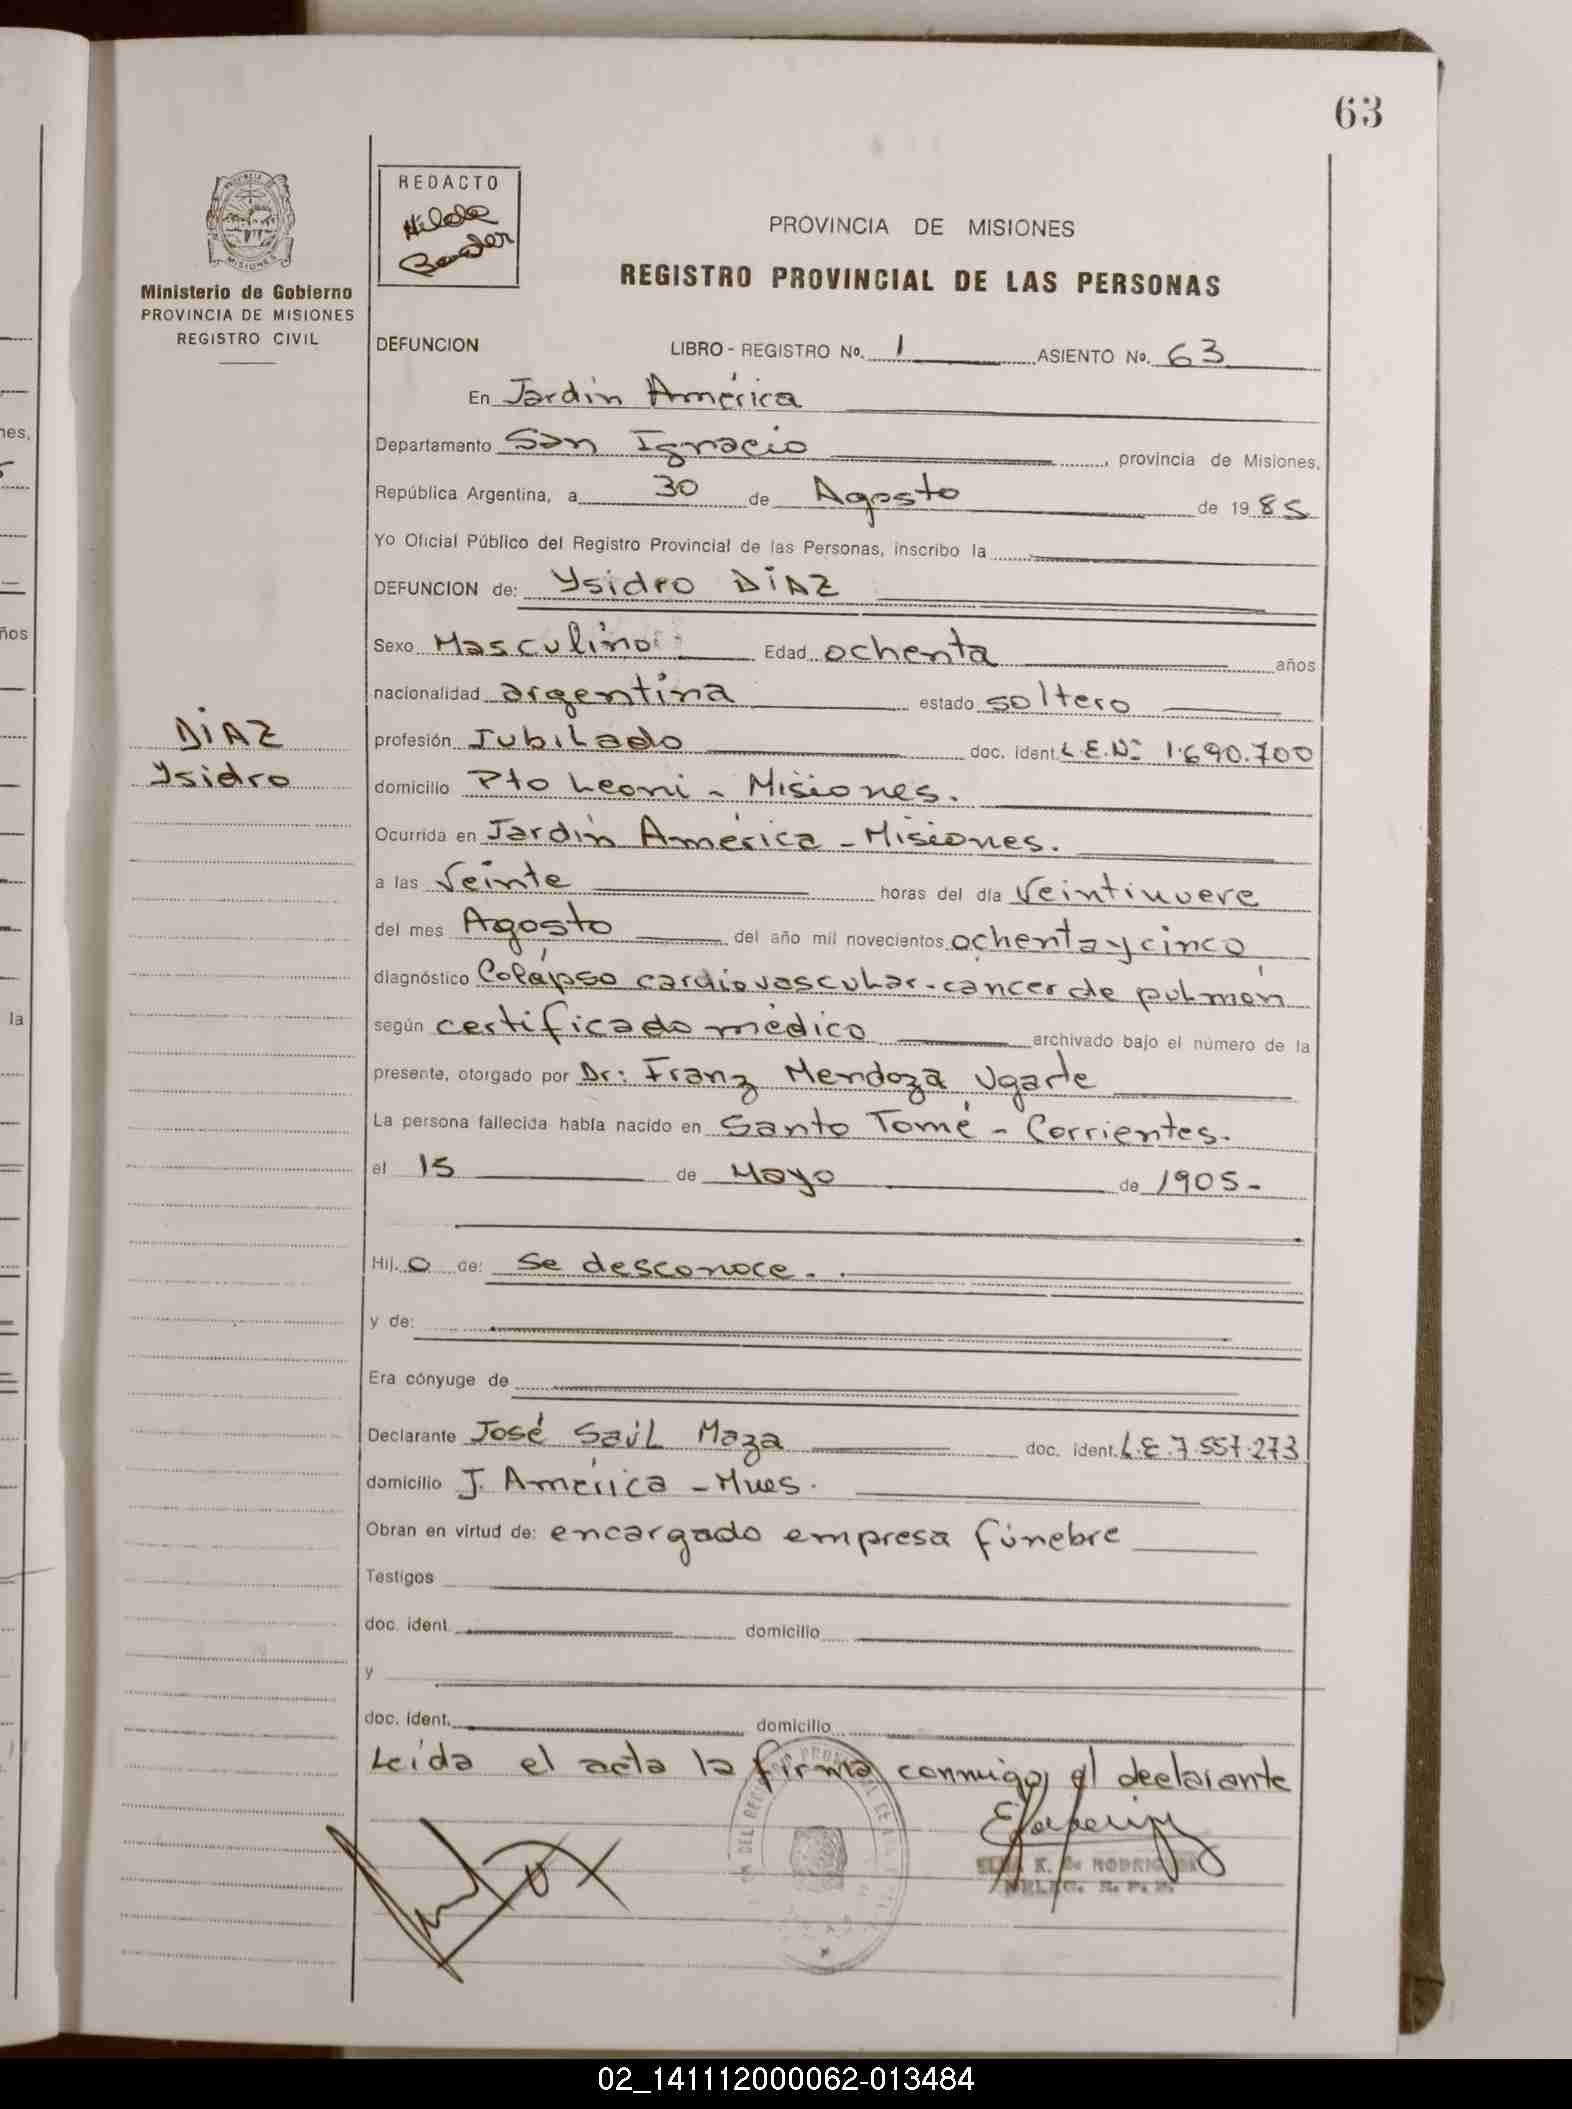 63
REDACTO
Hilda
Bender
PROVINCIA DE MISIONES
REGISTRO PROVINCIAL DE LAS PERSONAS
Ministerio de Gobierno
PROVINCIA DE MISIONES
REGISTRO CIVIL
DEFUNCION LIBRO - REGISTRO No. 1 ASIENTO No. 63
En Jardín América
Departamento San Ignacio, provincia de Misiones,
República Argentina, a 30 de Agosto de 1985
Yo Oficial Público del Registro Provincial de las Personas, inscribo la
DEFUNCION de: Ysidro DiAZ
Sexo Masculino Edad ochenta años
nacionalidad argentina estado soltero
DiAZ
Ysidro
profesión Jubilado doc. ident. L.E.Nº 1.690.700
domicilio Pto Leoni - Misiones.
Ocurrida en Jardín América - Misiones.
a las Veinte horas del día Veintinueve
del mes Agosto del año mil novecientos ochenta y cinco
diagnóstico Colápso cardiovascular - cancer de pulmón
según certificado médico archivado bajo el número de la
presente, otorgado por Dr: Franz Mendoza Ugarte
La persona fallecida había nacido en Santo Tomé - Corrientes.
el 15 de Mayo de 1905-
Hij o de: Se desconoce.
y de:
Era cónyuge de
Declarante José Saúl Maza doc. ident. L.E. 7.557.273
domicilio J. América - Mnes.
Obran en virtud de: encargado empresa fúnebre
Testigos
doc. ident. domicilio
y
doc. ident. domicilio
Leída el acta la firma conmigo el declarante
02_141112000062-013484